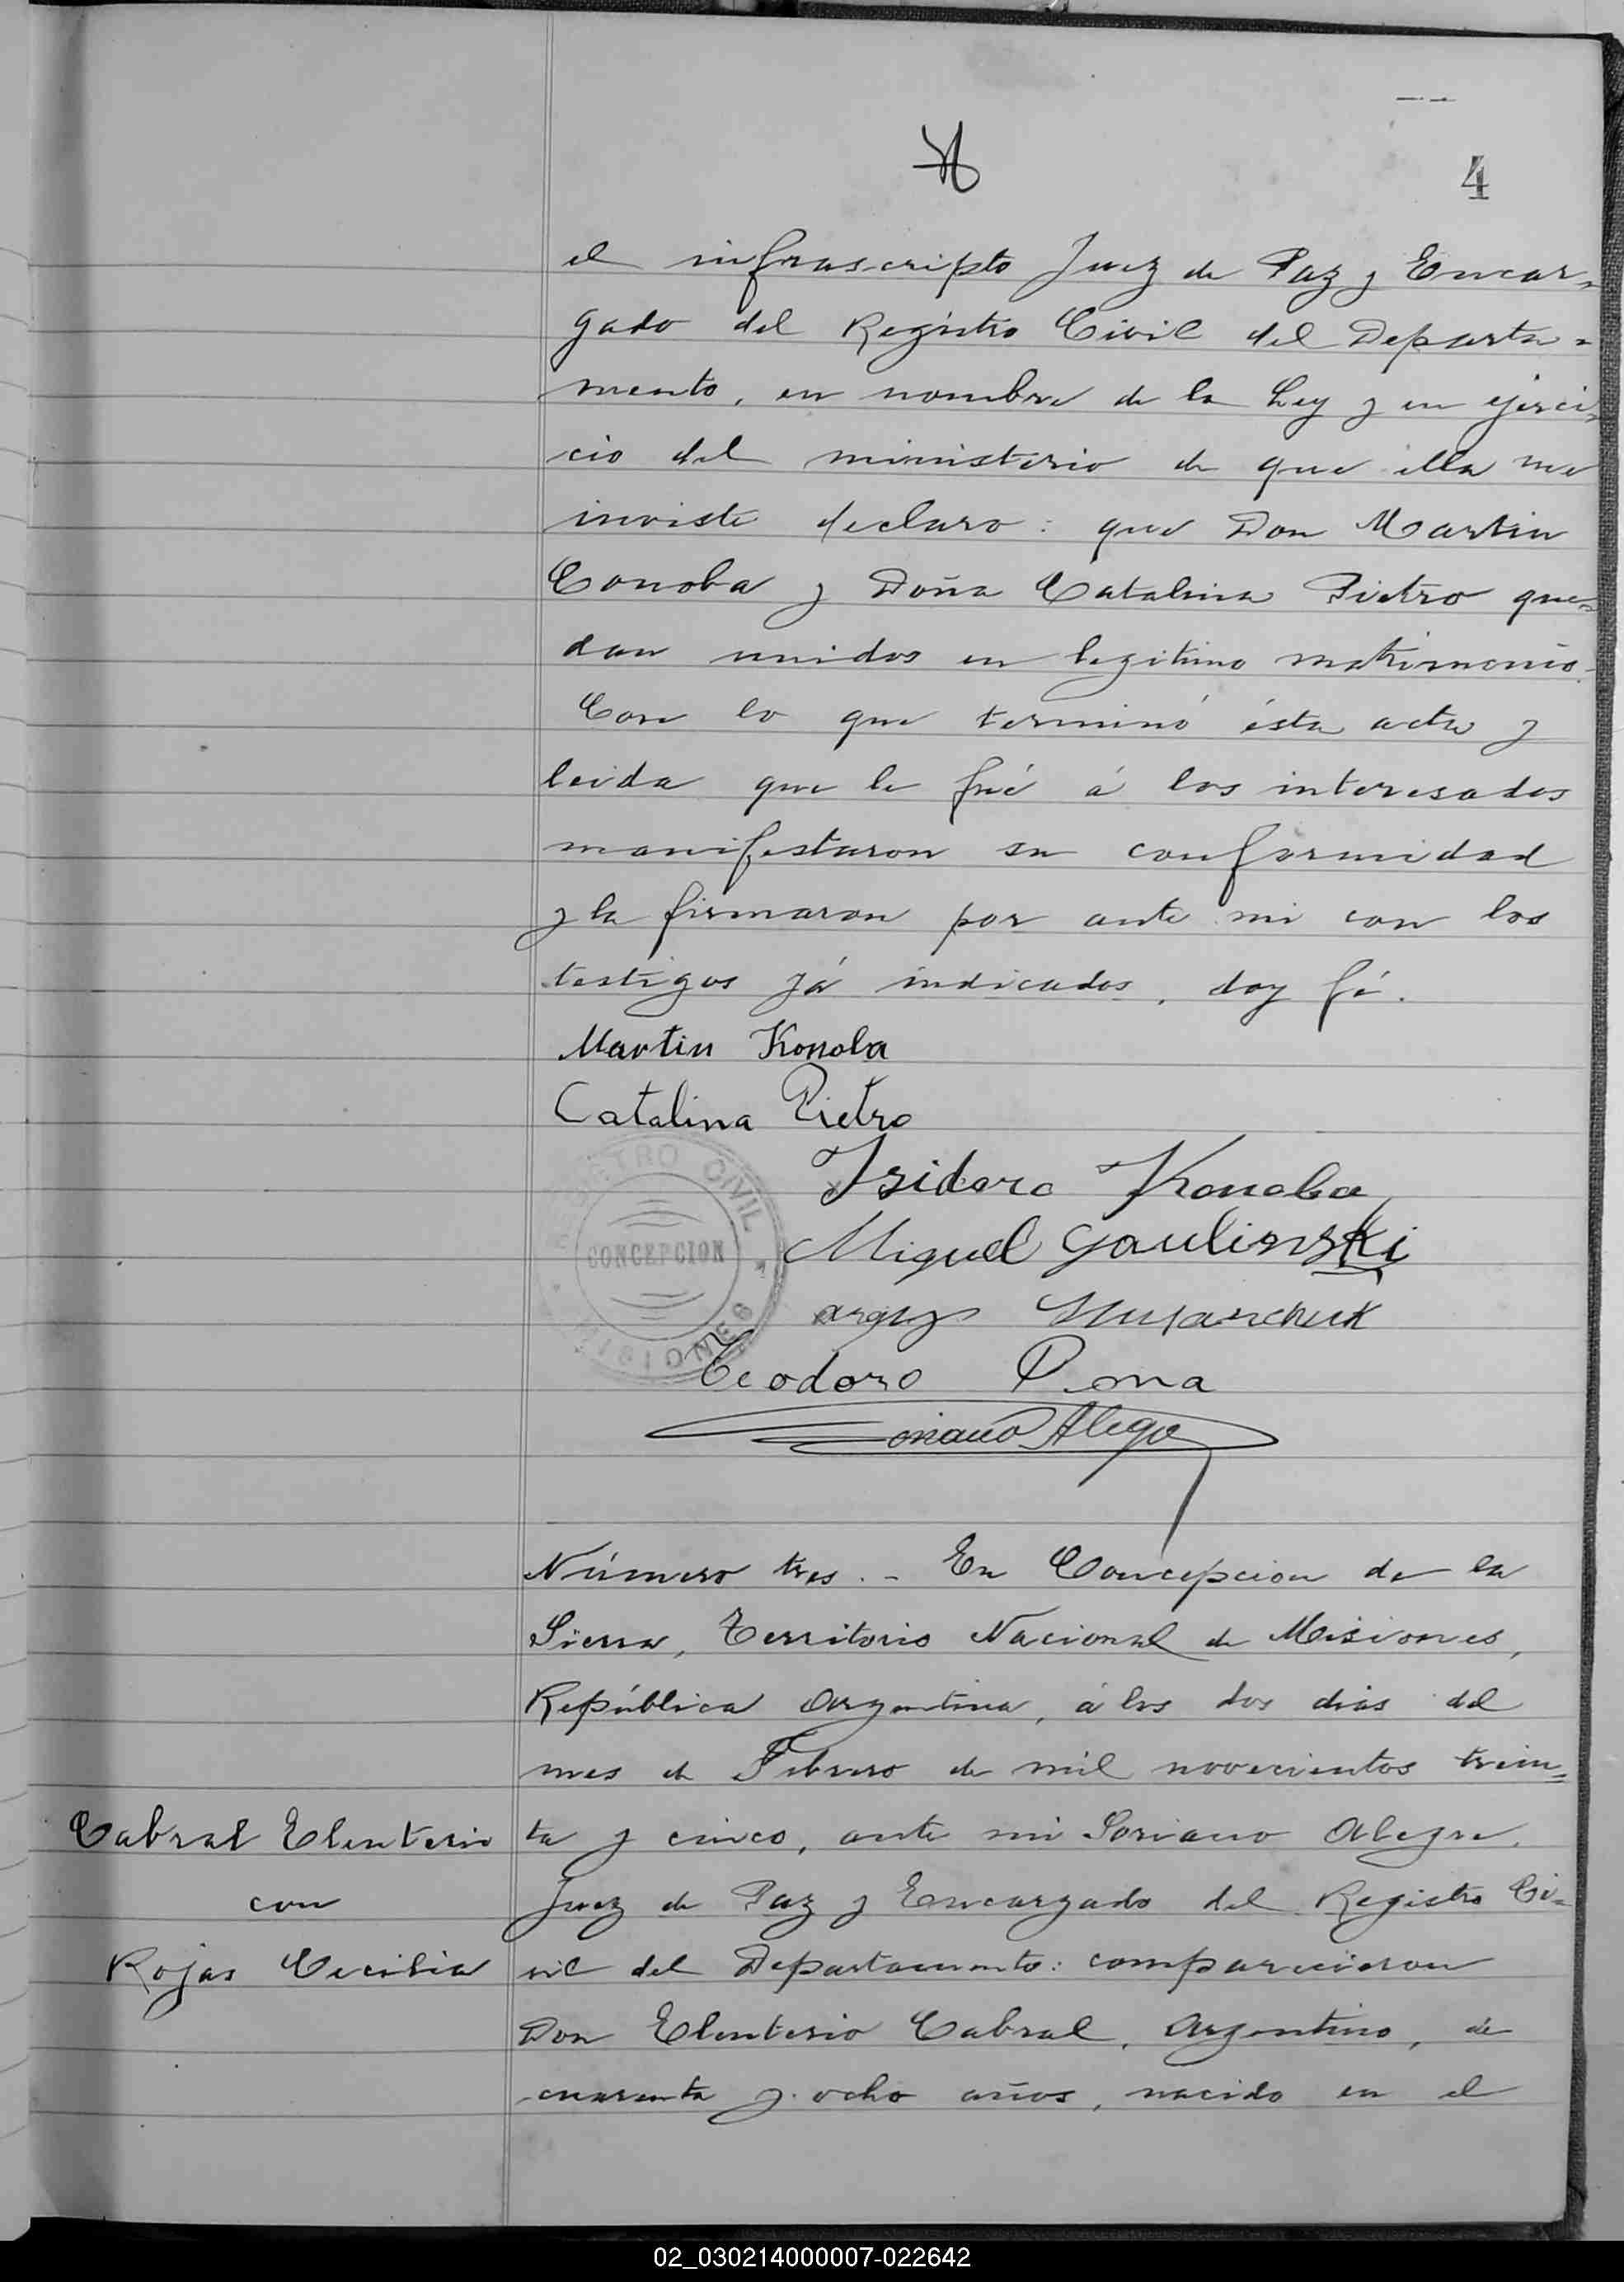 4
el infrascripto Juez de Paz y Encar-
gado del Registro Civil del Departa-
mento, en nombre de la Ley y en ejerci-
cio del ministerio de que ella me
inviste declaro: que Don Martin
Conoba y Doña Catalina Pietro que-
dan unidos en legitimo matrimonio.
Con lo que terminó ésta acta y
leida que le fué á los interesados
manifestaron su conformidad
y la firmaron por ante mi con los
testigos já indicados, doy fé.
Martin Konoba
Catalina Pietro
Isidoro Konoba
Miguel Gaulinski
Teodoro Pona
Soriano Alegre
REGISTRO CIVIL
CONCEPCION
MISIONES
Número tres.- En Concepcion de la
Sierra, Territorio Nacional de Misiones,
República Argentina, á los dos dias del
mes de Febrero de mil novecientos trein=
ta y cinco, ante mi Soriano Alegre,
Juez de Paz y Encargado del Registro Ci-
vil del Departamento: comparecieron
Don Eleuterio Cabral, Argentino, de
cuarenta y ocho años, nacido en el
Cabral Eleuterio
con
Rojas Cecilia
02_030214000007-022642